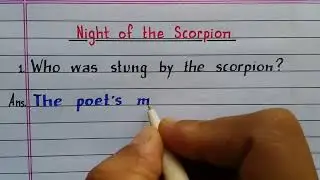 Night of the Scorpion
1. Who was stung by the scorpion?
Ans. The poet's m